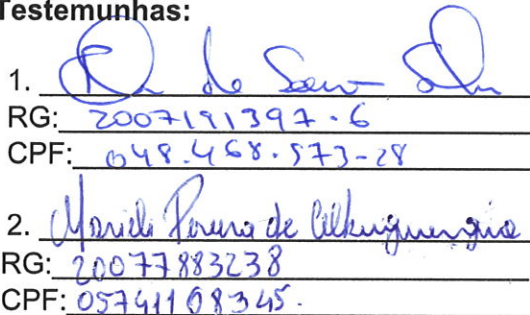 Testemunhas:
1. de
RG: 2007191397-6
CPF: 048.468.573-28
2. Pereira de
RG: 20077883238
CPF: 05741108345.